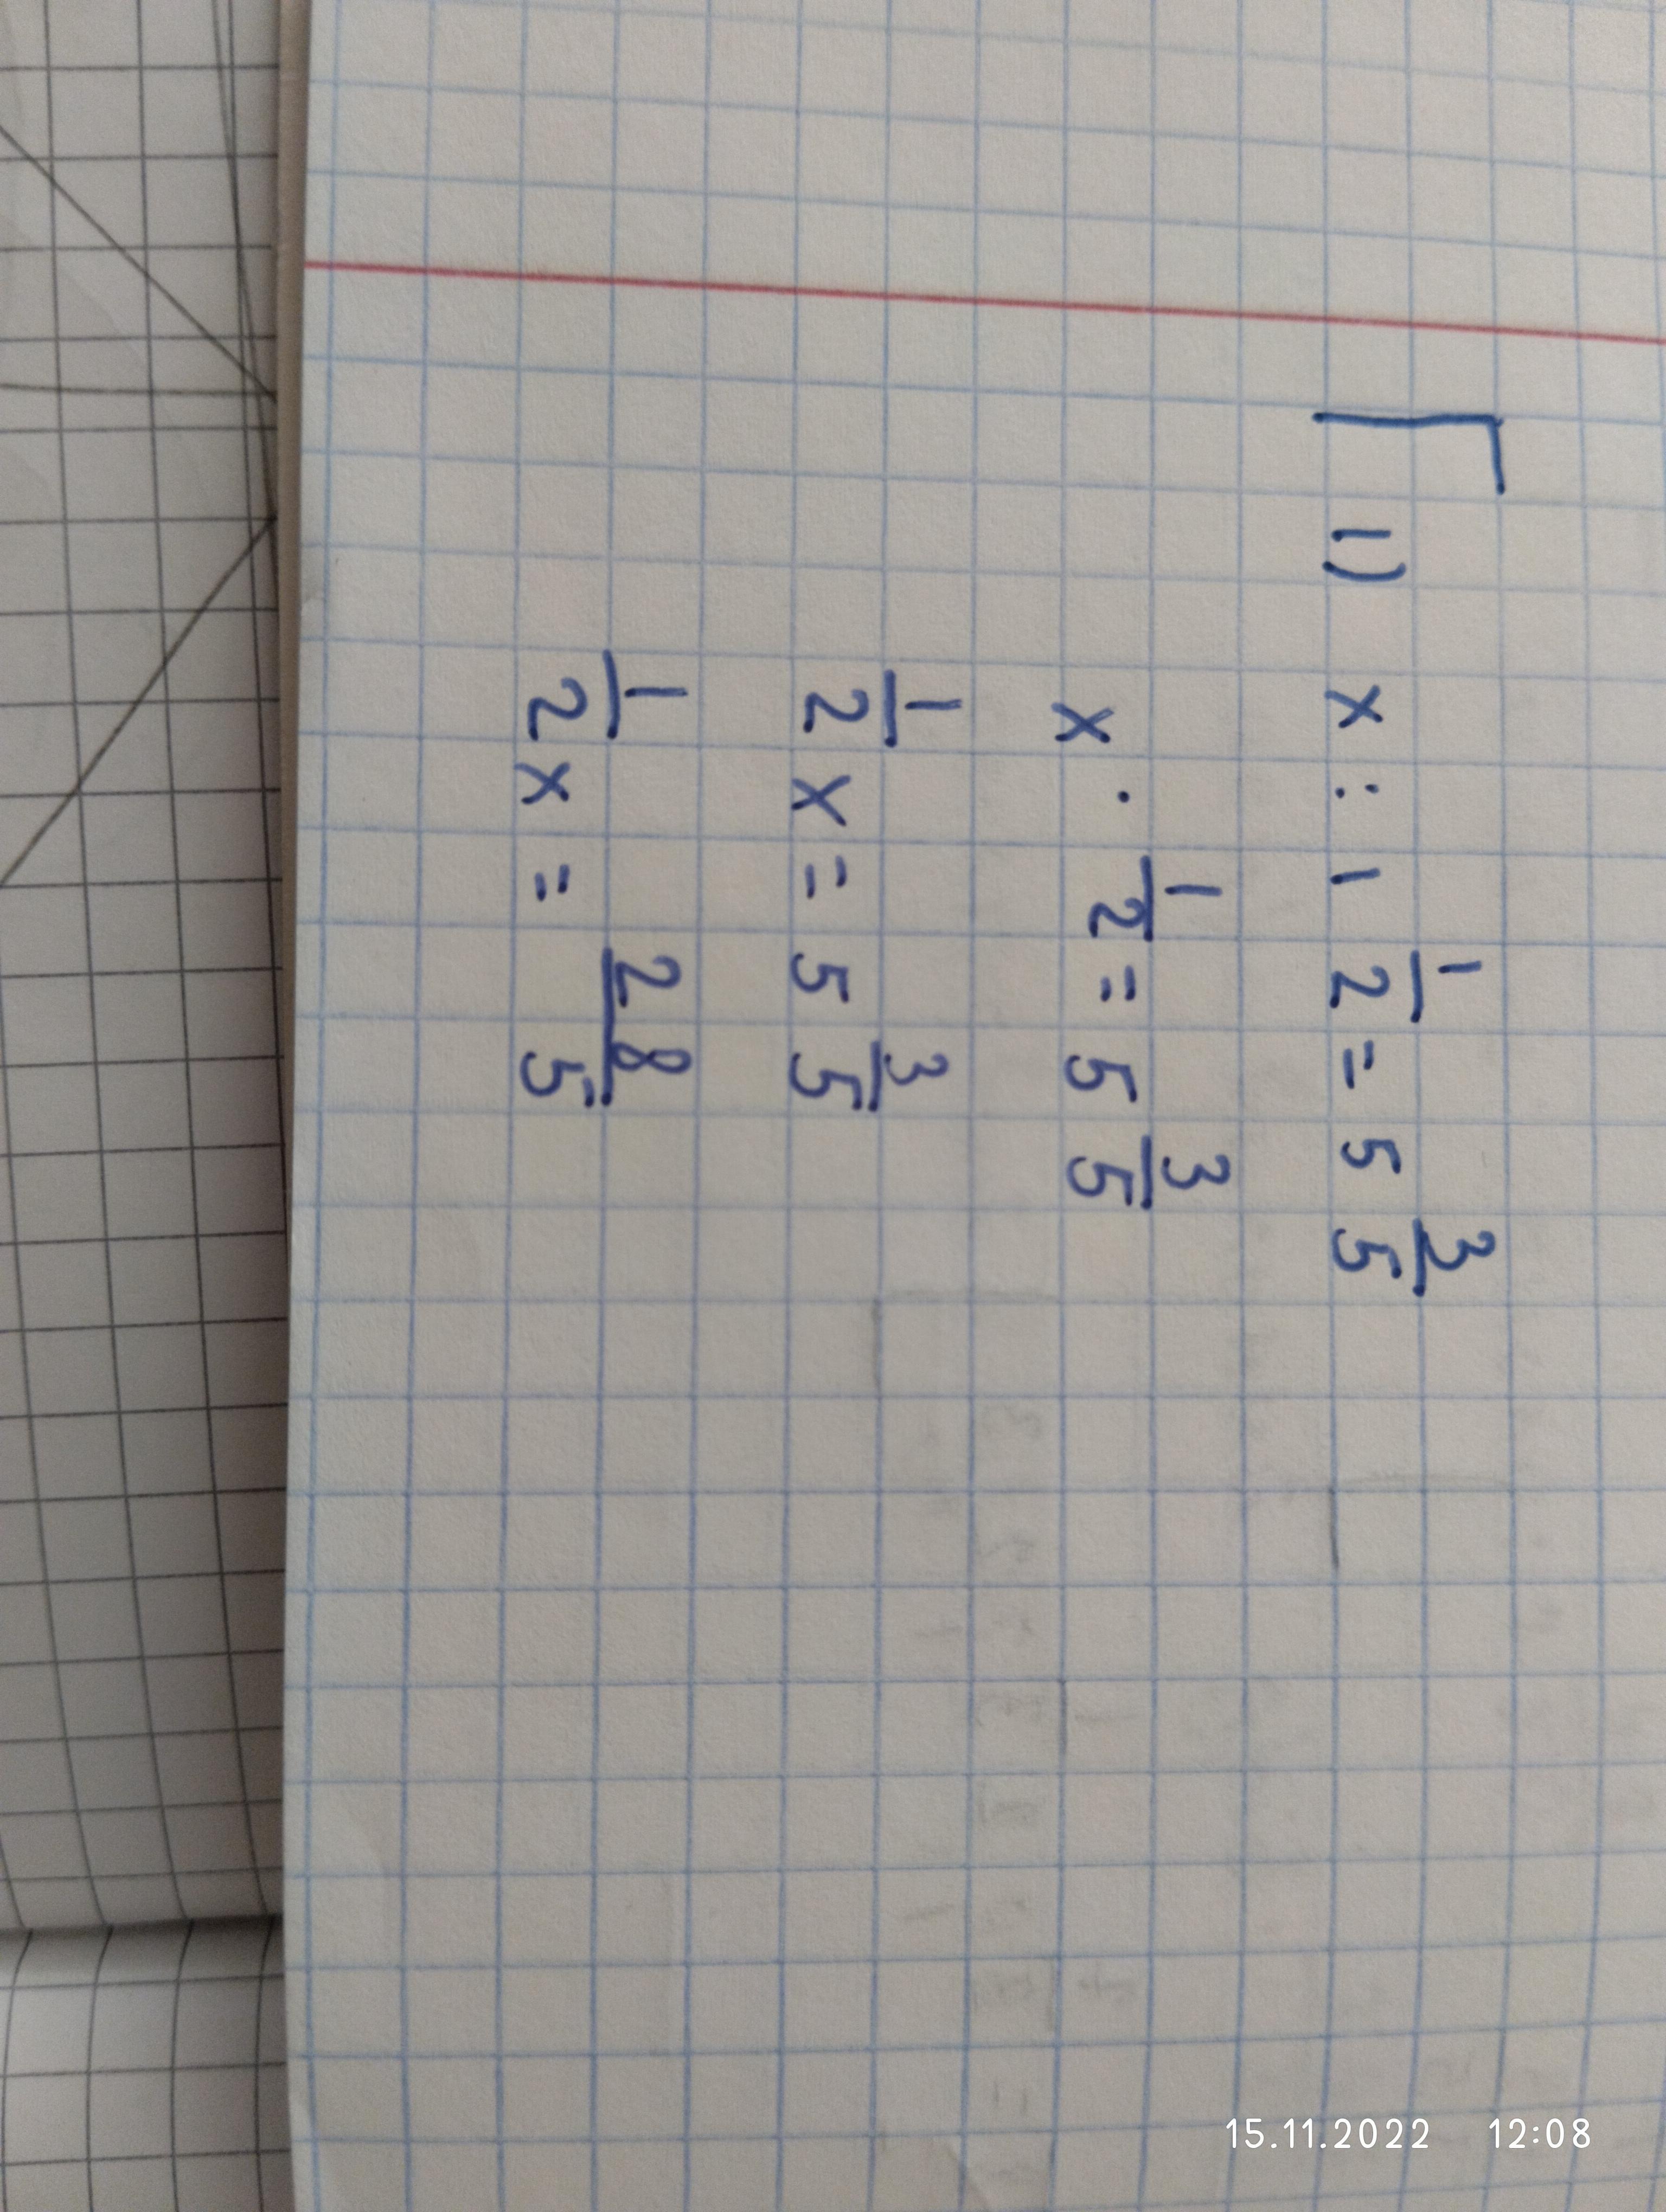 1) x : 1 1/2 = 5 3/5
x · 1/2 = 5 3/5
1/2 x = 5 3/5
1/2 x = 28/5
15.11.2022 12:08